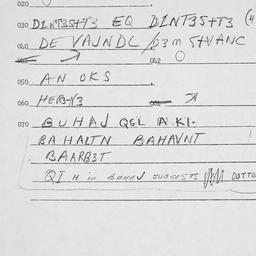 020
030 DINT35+T3 EQ DINT35+T3 (4
040 DE VAJNDL /03m S+VANC
042
050 AN OKS
060 HERB43
070 BUHAJ QGL A.KI.
BAHALTN BAHAVNT
BAARB3T
QI H in BUHAJ SUGGESTS DOTTE